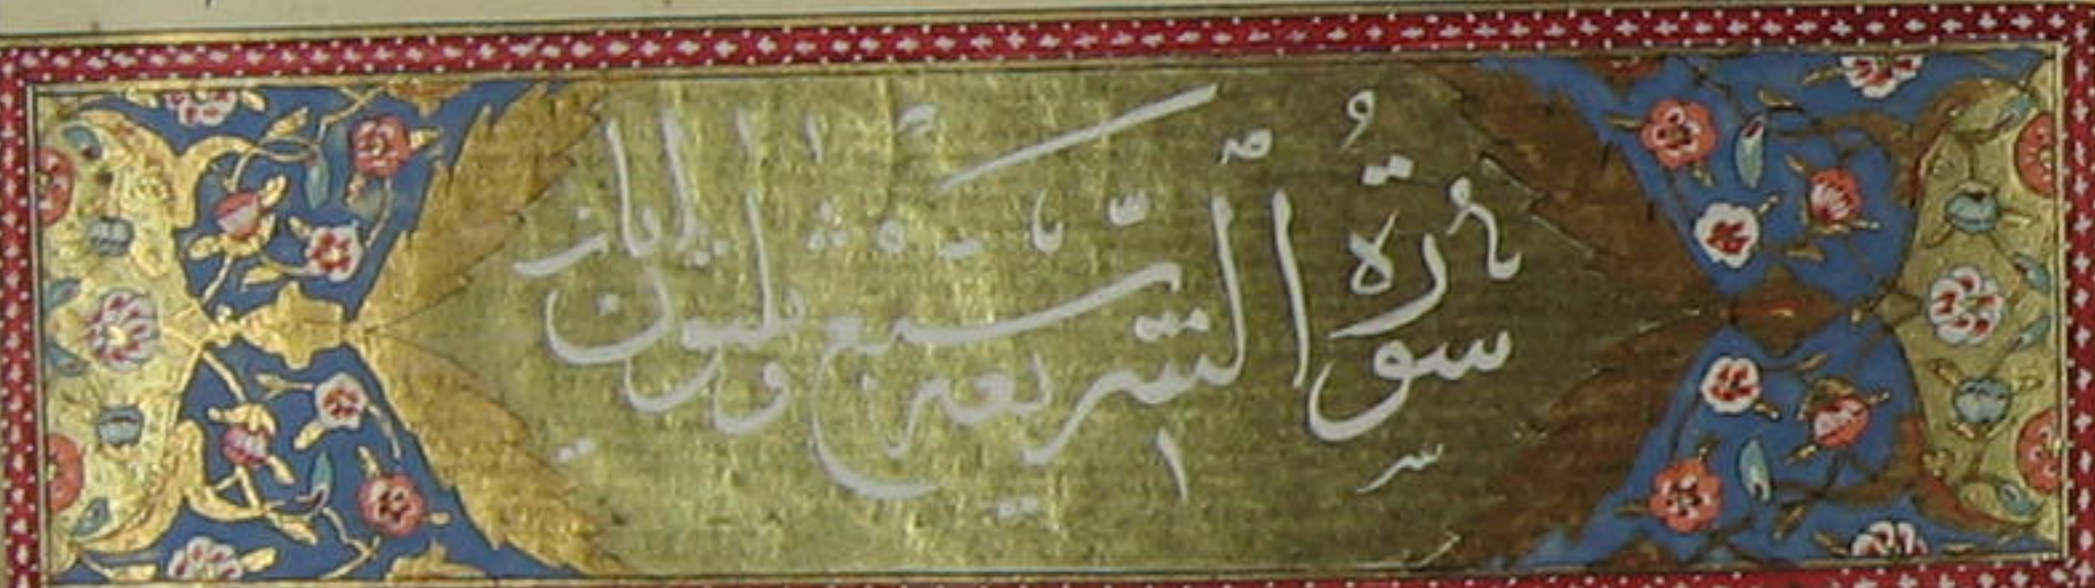 سورة الشريعة سبع وثلثون آيات